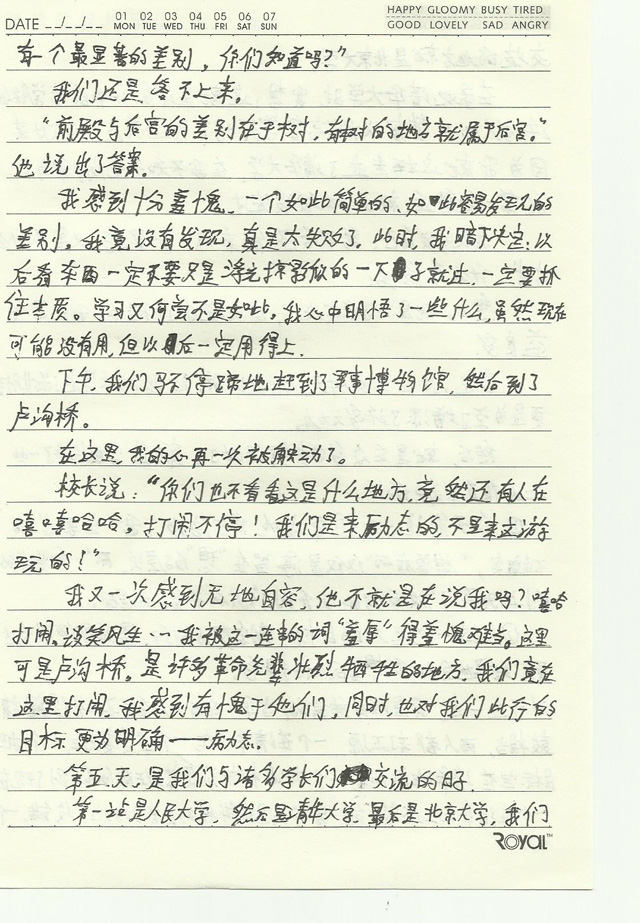 DATE __/__/__
01 02 03 04 05 06 07
MON TUE WED THU FRI SAT SUN
HAPPY GLOOMY BUSY TIRED
GOOD LOVELY SAD ANGRY
有个最显著的差别，你们知道吗？”
我们还是答不上来。
“前殿与后宫的差别在于树，有树的地方就属于后宫。”
他说出了答案。
我感到十分羞愧，一个如此简单的、如此容易发现的
差别。我竟没有发现，真是太失败了。此时，我暗下决定：以
后看东西一定不要只是浮光掠影似的一下子就过，一定要抓
住本质。学习又何尝不是如此。我心中明悟了一些什么，虽然现在
可能没有用，但以后一定用得上.
下午，我们马不停蹄地赶到了军事博物馆，然后到了
卢沟桥。
在这里，我的心再一次被触动了。
校长说：“你们也不看看这是什么地方，竟然还有人在
嘻嘻哈哈，打闹不停！我们是来励志的，不是来这游
玩的！”
我又一次感到无地自容，他不就是在说我吗？嘻哈
打闹、谈笑风生…我被这一连串的词“羞辱”得羞愧难当。这里
可是卢沟桥。是许多革命先辈壮烈牺牲的地方，我们竟在
这里打闹，我感到有愧于他们，同时，也对我们此行的
目标更为明确——励志。
第五天，是我们与诸多学长们交流的日子.
第一站是人民大学，然后是清华大学，最后是北京大学，我们
ROYAL